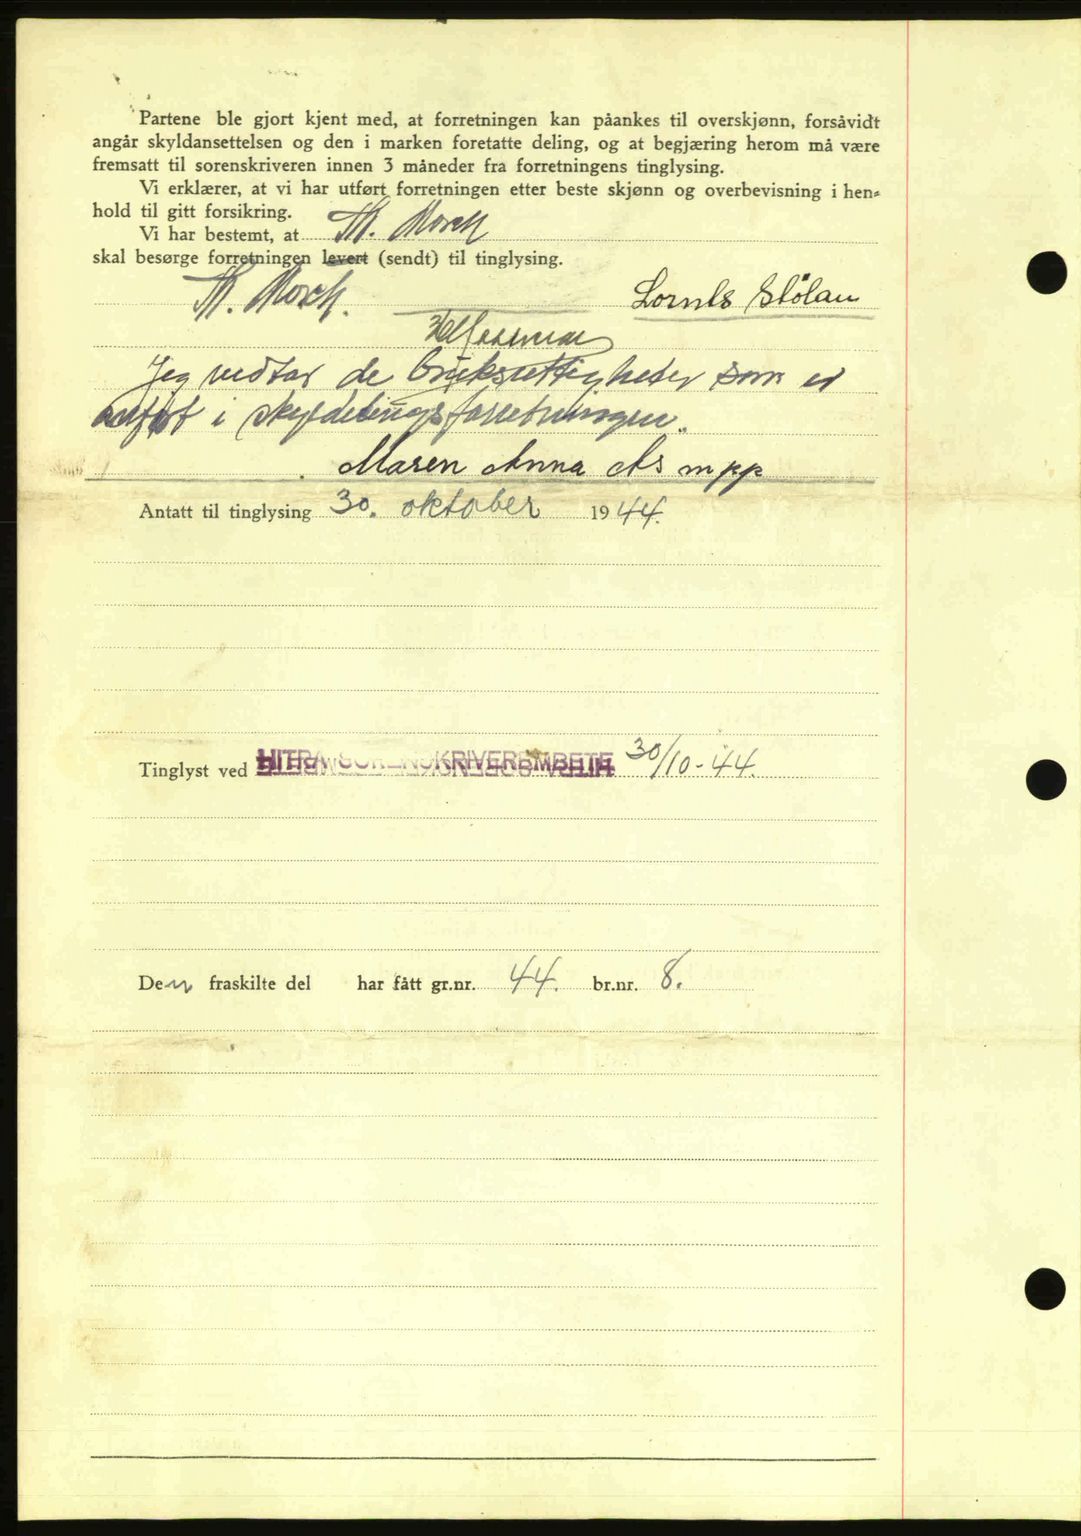 Partene ble gjort kjent med, at forretningen kan påankes til overskjønn, forsåvidt
angår skyldansettelsen og den i marken foretatte deling, og at begjæring herom må være
fremsatt til sorenskriveren innen 3 måneder fra forretningens tinglysing.
Vi erklærer, at vi har utført forretningen etter beste skjønn og overbevisning i hen-
hold til gitt forsikring.
Vi har bestemt, at Th. Morch
skal besørge forretningen levert (sendt) til tinglysing.
Th. Morch. Lornts Stölan
Jeg vedtar de bruksrettigheder som er
anført i skyldelingsforretningen.
Maren Anna As mpp
Antatt til tinglysing 30. oktober 1944.
Tinglyst ved HITRA SORENSKRIVEREMBETE 30/10-44.
Den fraskilte del har fått gr.nr. 44. br.nr. 8.